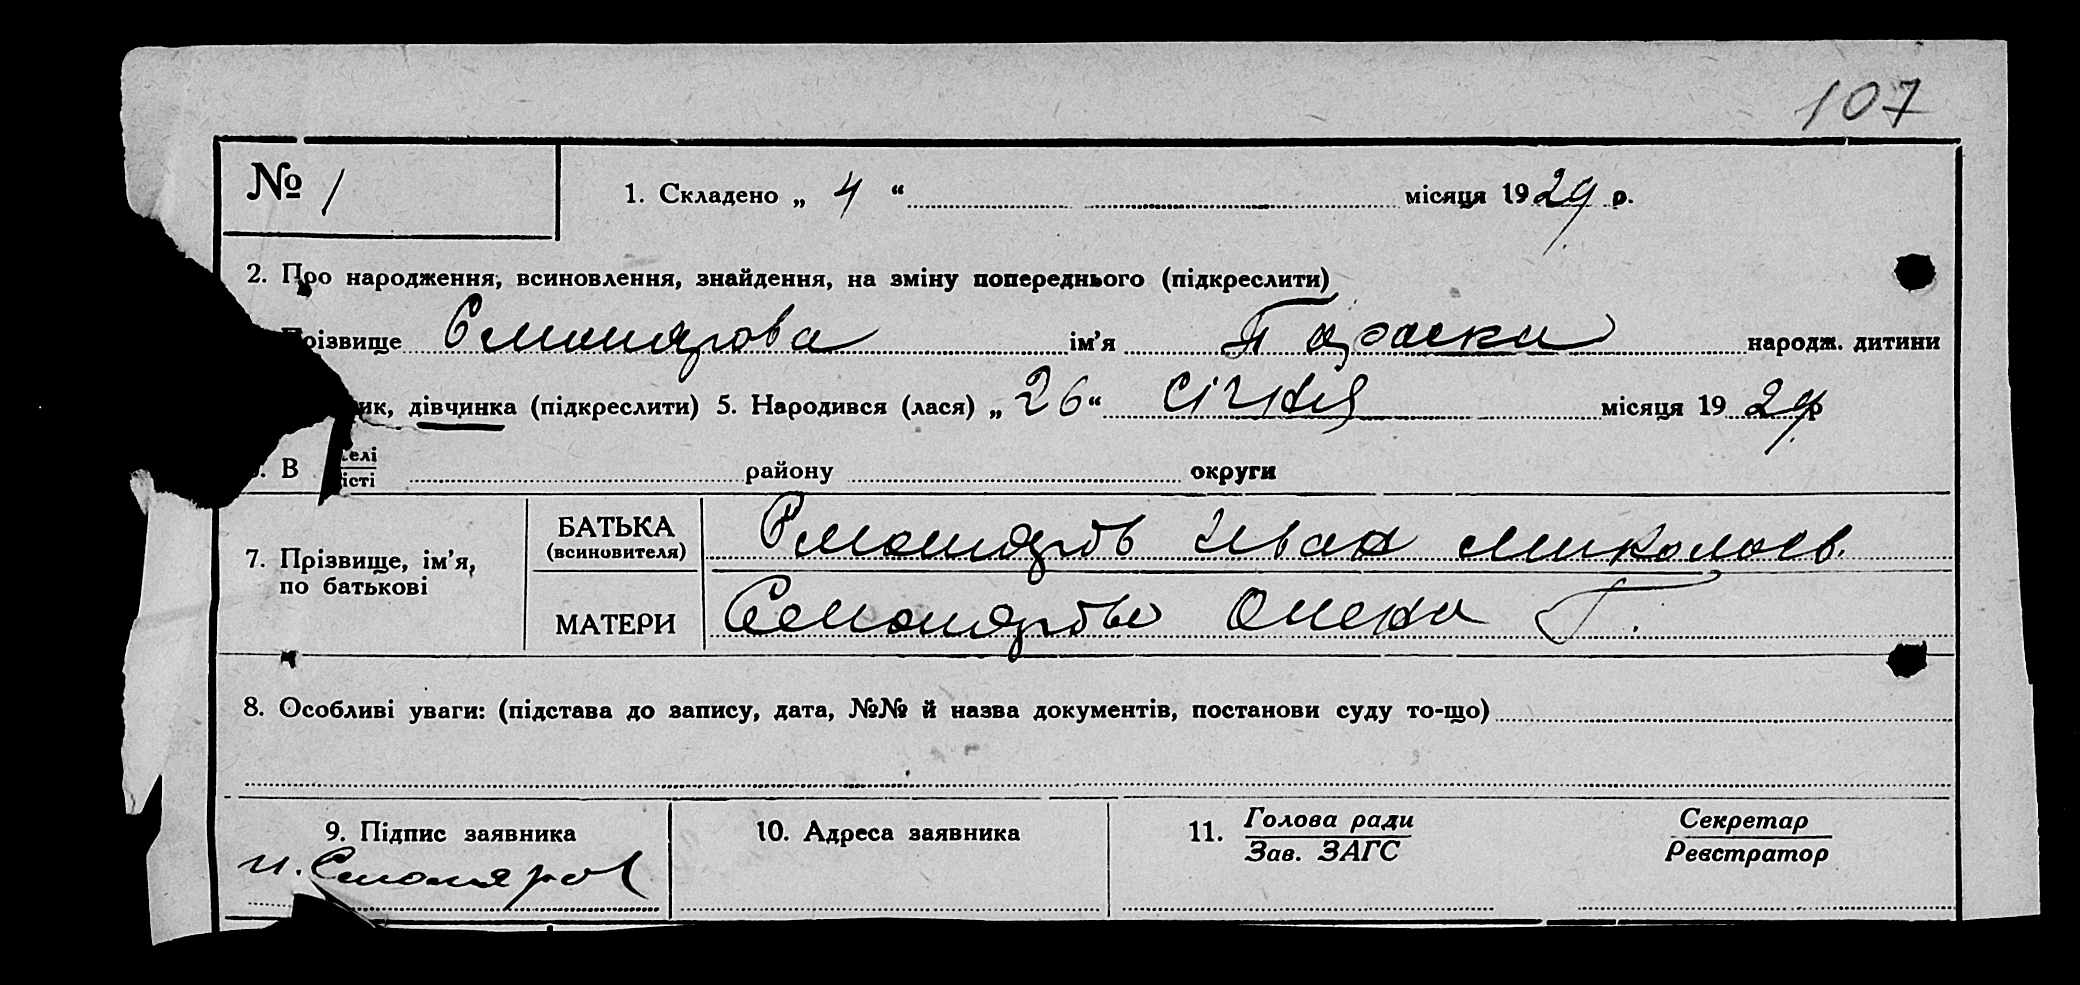 107
№ 1
1. Складено „ 4 “ місяця 1929 р.
2. Про народження, всиновлення, знайдення, на зміну попереднього (підкреслити)
різвище Смолярова ім'я Параски народж. дитини
ик, дівчинка (підкреслити) 5. Народився (лася) „ 26 “ січня місяця 1929 р
. В елі
істі району округи
7. Прізвище, ім'я, по батькові
БАТЬКА (всиновителя) Смоляров Иван Миколаєв.
МАТЕРИ Смолярова Олена Г.
8. Особливі уваги: (підстава до запису, дата, №№ й назва документів, постанови суду то-що)
9. Підпис заявника 10. Адреса заявника 11. Голова ради Секретар
Зав. ЗАГС Реєстратор
И. Смоляров